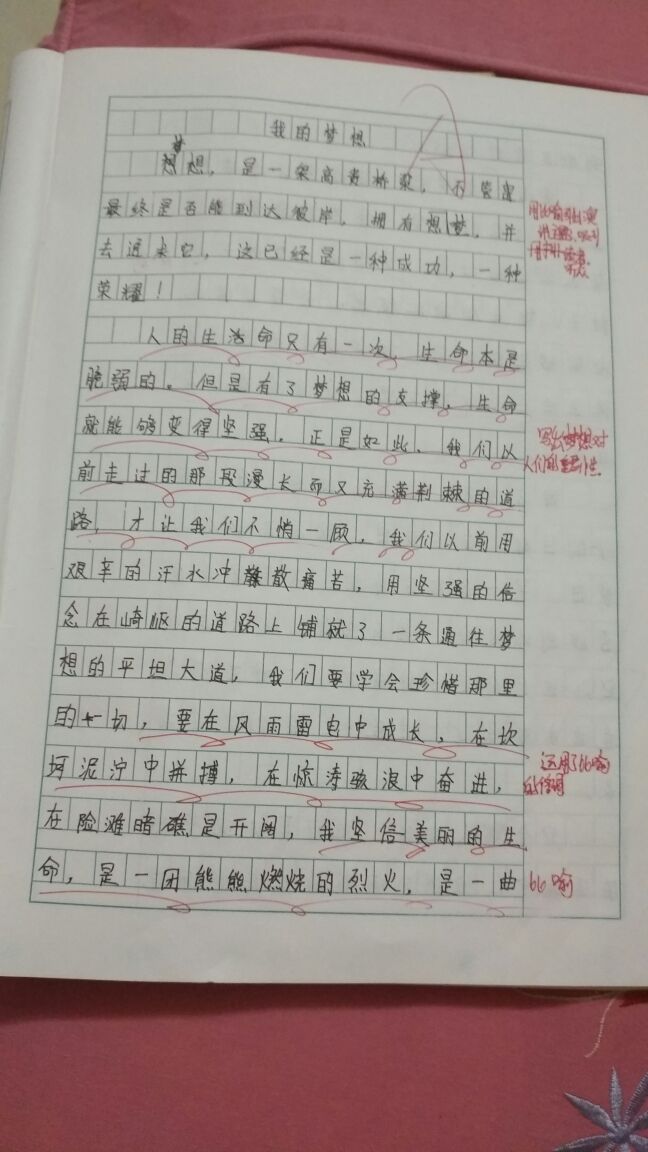 我的梦想
梦
想想，是一架高贵桥梁，不管是
最终是否能到达彼岸，拥有想梦，并
去追求它，这已经是一种成功，一种
荣耀！
人的生活命只有一次，生命本是
脆弱的。但是有了梦想的支撑，生命
就能够变得坚强，正是如此，我们以
前走过的那段漫长而又充满荆棘的道
路，才让我们不悄一顾，我们以前用
艰辛的汗水冲散痛苦，用坚强的信
念在崎岖的道路上铺就了一条通往梦
想的平坦大道，我们要学会珍惜那里
的一切，要在风雨雷电中成长，在坎
坷泥泞中拼搏，在惊涛骇浪中奋进，
在险滩暗礁是开阔，我坚信美丽的生
命，是一团熊熊燃烧的烈火，是一曲
写出梦想对
人们的重要性
运用了比喻
的修辞
比喻